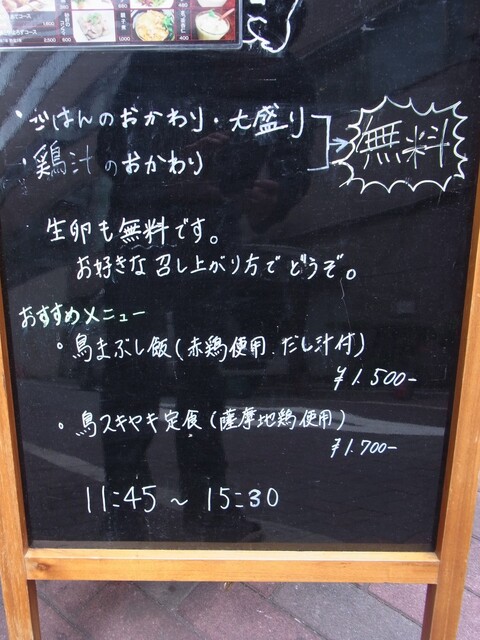 ・ごはんのおかわり・大盛り
・鶏汁のおかわり
無料
生卵も無料です。
お好きな召し上がり方でどうぞ。
おすすめメニュー
○鳥まぶし飯(赤鶏使用.だし汁付)
¥1.500-
○鳥スキヤキ定食(薩摩地鶏使用)
¥1.700-
11:45～15:30